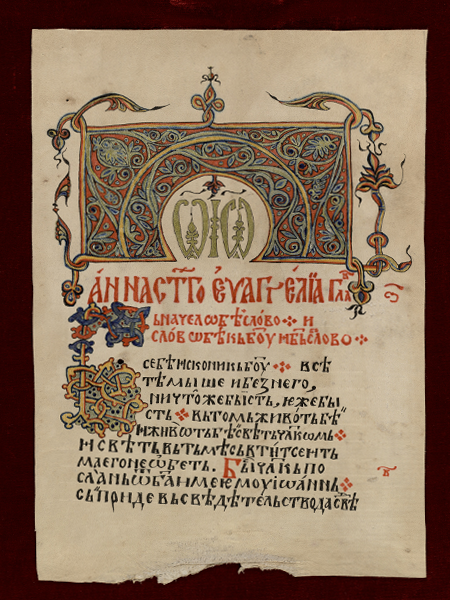 ѾІѠ
аннаст҃го еѵаггелїа гла
ьначелѡбѣслово ⁘ и
словѡбѣкьбоу ибьслово ⁘
себѣисконикьбоу ⁘ всѣ
тѣмьıше ибезнего,
ничтожебысть, южебы
сть ⁘ вьтомьживоть бѣ
иживѡтьбѣсвѣтьчлкѡмь ⁘
исвѣтьвьтьмѣсьвтитсеить
маегонеѡбеть. Бычлкьпо
сланьѿбаимеемоуіѡаннь ⁘
сьıпридевьсвѣдѣтельстводасвѣ